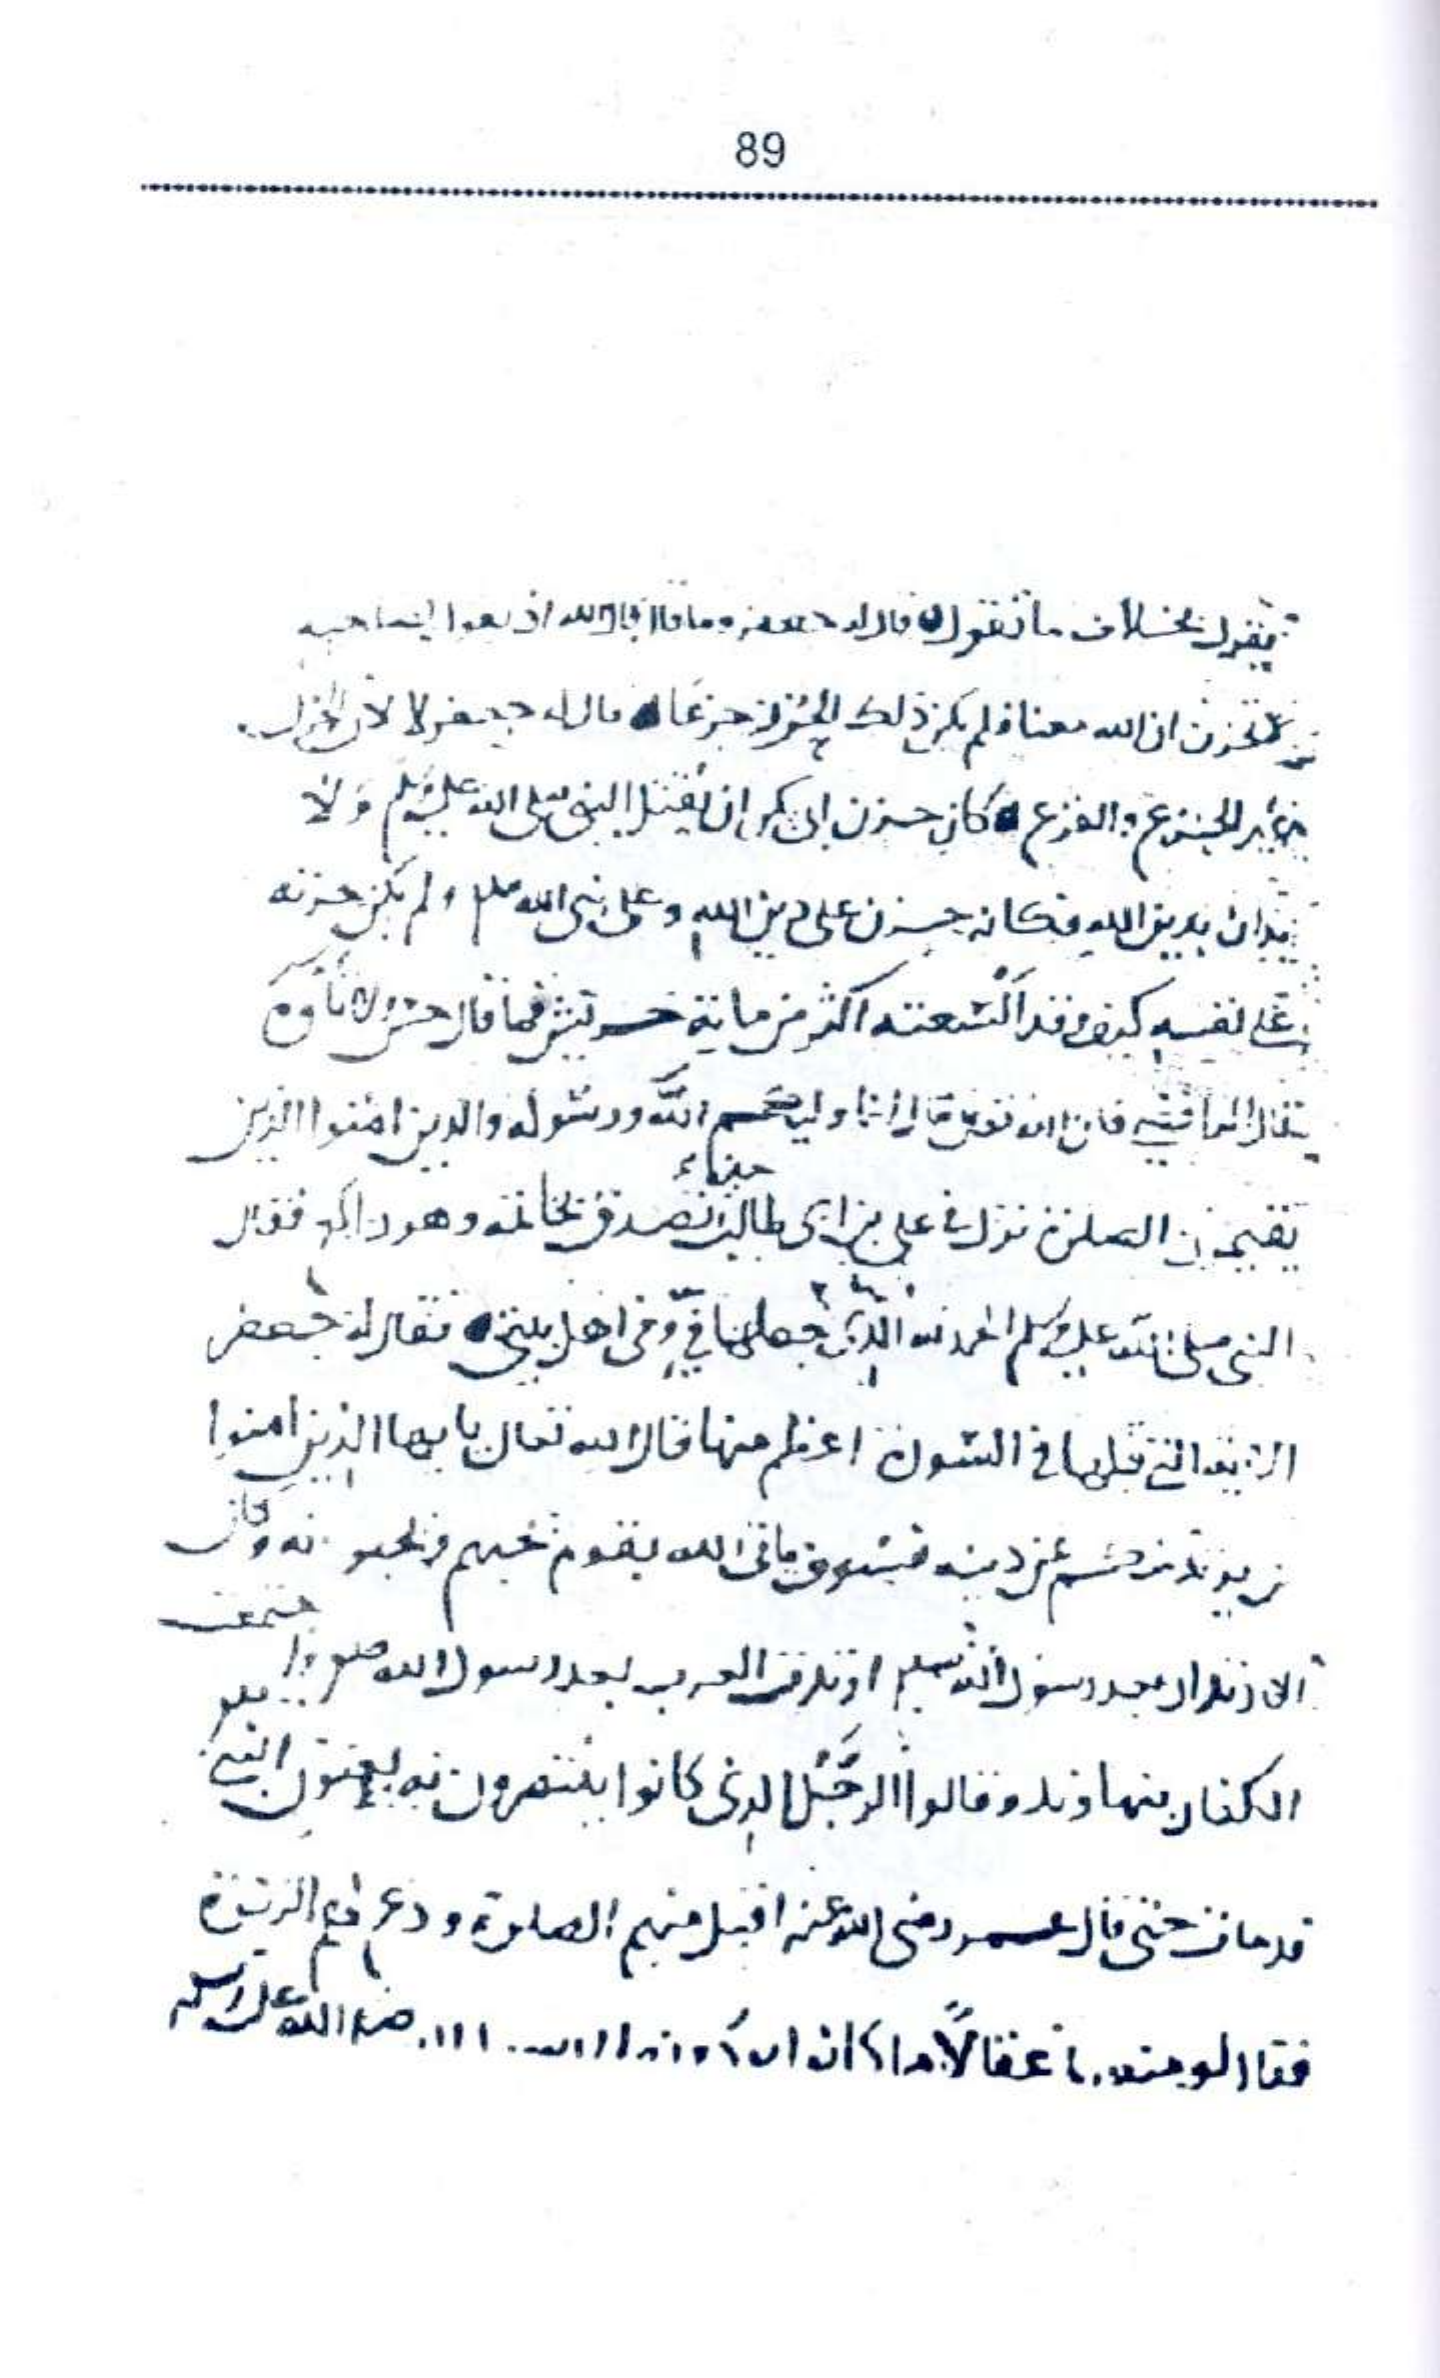 89
يقول بخلاف ما تقول قال له جعفر وما قال قال الله اذ يقول لصاحبه
لا تحزن ان الله معنا فلم يكن ذلك الحزن جزعا قال له جعفر لا لان الحزن
غير الجزع والفزع كان حزن ابى بكر ان يقتل النبى صلى الله عليه وسلم ولا
يدان بدين الله فكان حزن على دين الله وعلى نبى الله صلعم ولم يكن حزنه
على نفسه كيف وقد السعته اكثر من ماية حريش فما قال حس ولا ناوه
قال الرافضى فان الله تعالى قال انما وليكم الله ورسوله والذين امنوا الذين
يقيمون الصلوة نزل فى على بن ابى طالب تصدق بخاتمه وهو راكع فقال
النبى صلى الله عليه وسلم الحمد لله الذى جعلها فى وفى اهل بيتى فقال له جعفر
الاية التى قبلها فى السورة اعظم منها قال الله تعالى يا يها الذين امنوا
من يرتد منكم عن دينه فسوف ياتى الله بقوم يحبهم ويحبونه وكان
الارتداد بعد رسول الله صلعم ارتدت العرب بعد رسول الله صلعم واجتمعت
الكفار بنهاوند وقالوا الرجل الذى كانوا ينتصرون به يعنون النبى
قد مات حتى قال عمر رضى الله عنه اقبل منهم الصلوة ودع لهم الزكوة
فقال لو منعونى عقالا مما كانوا صلى الله عليه وسلم